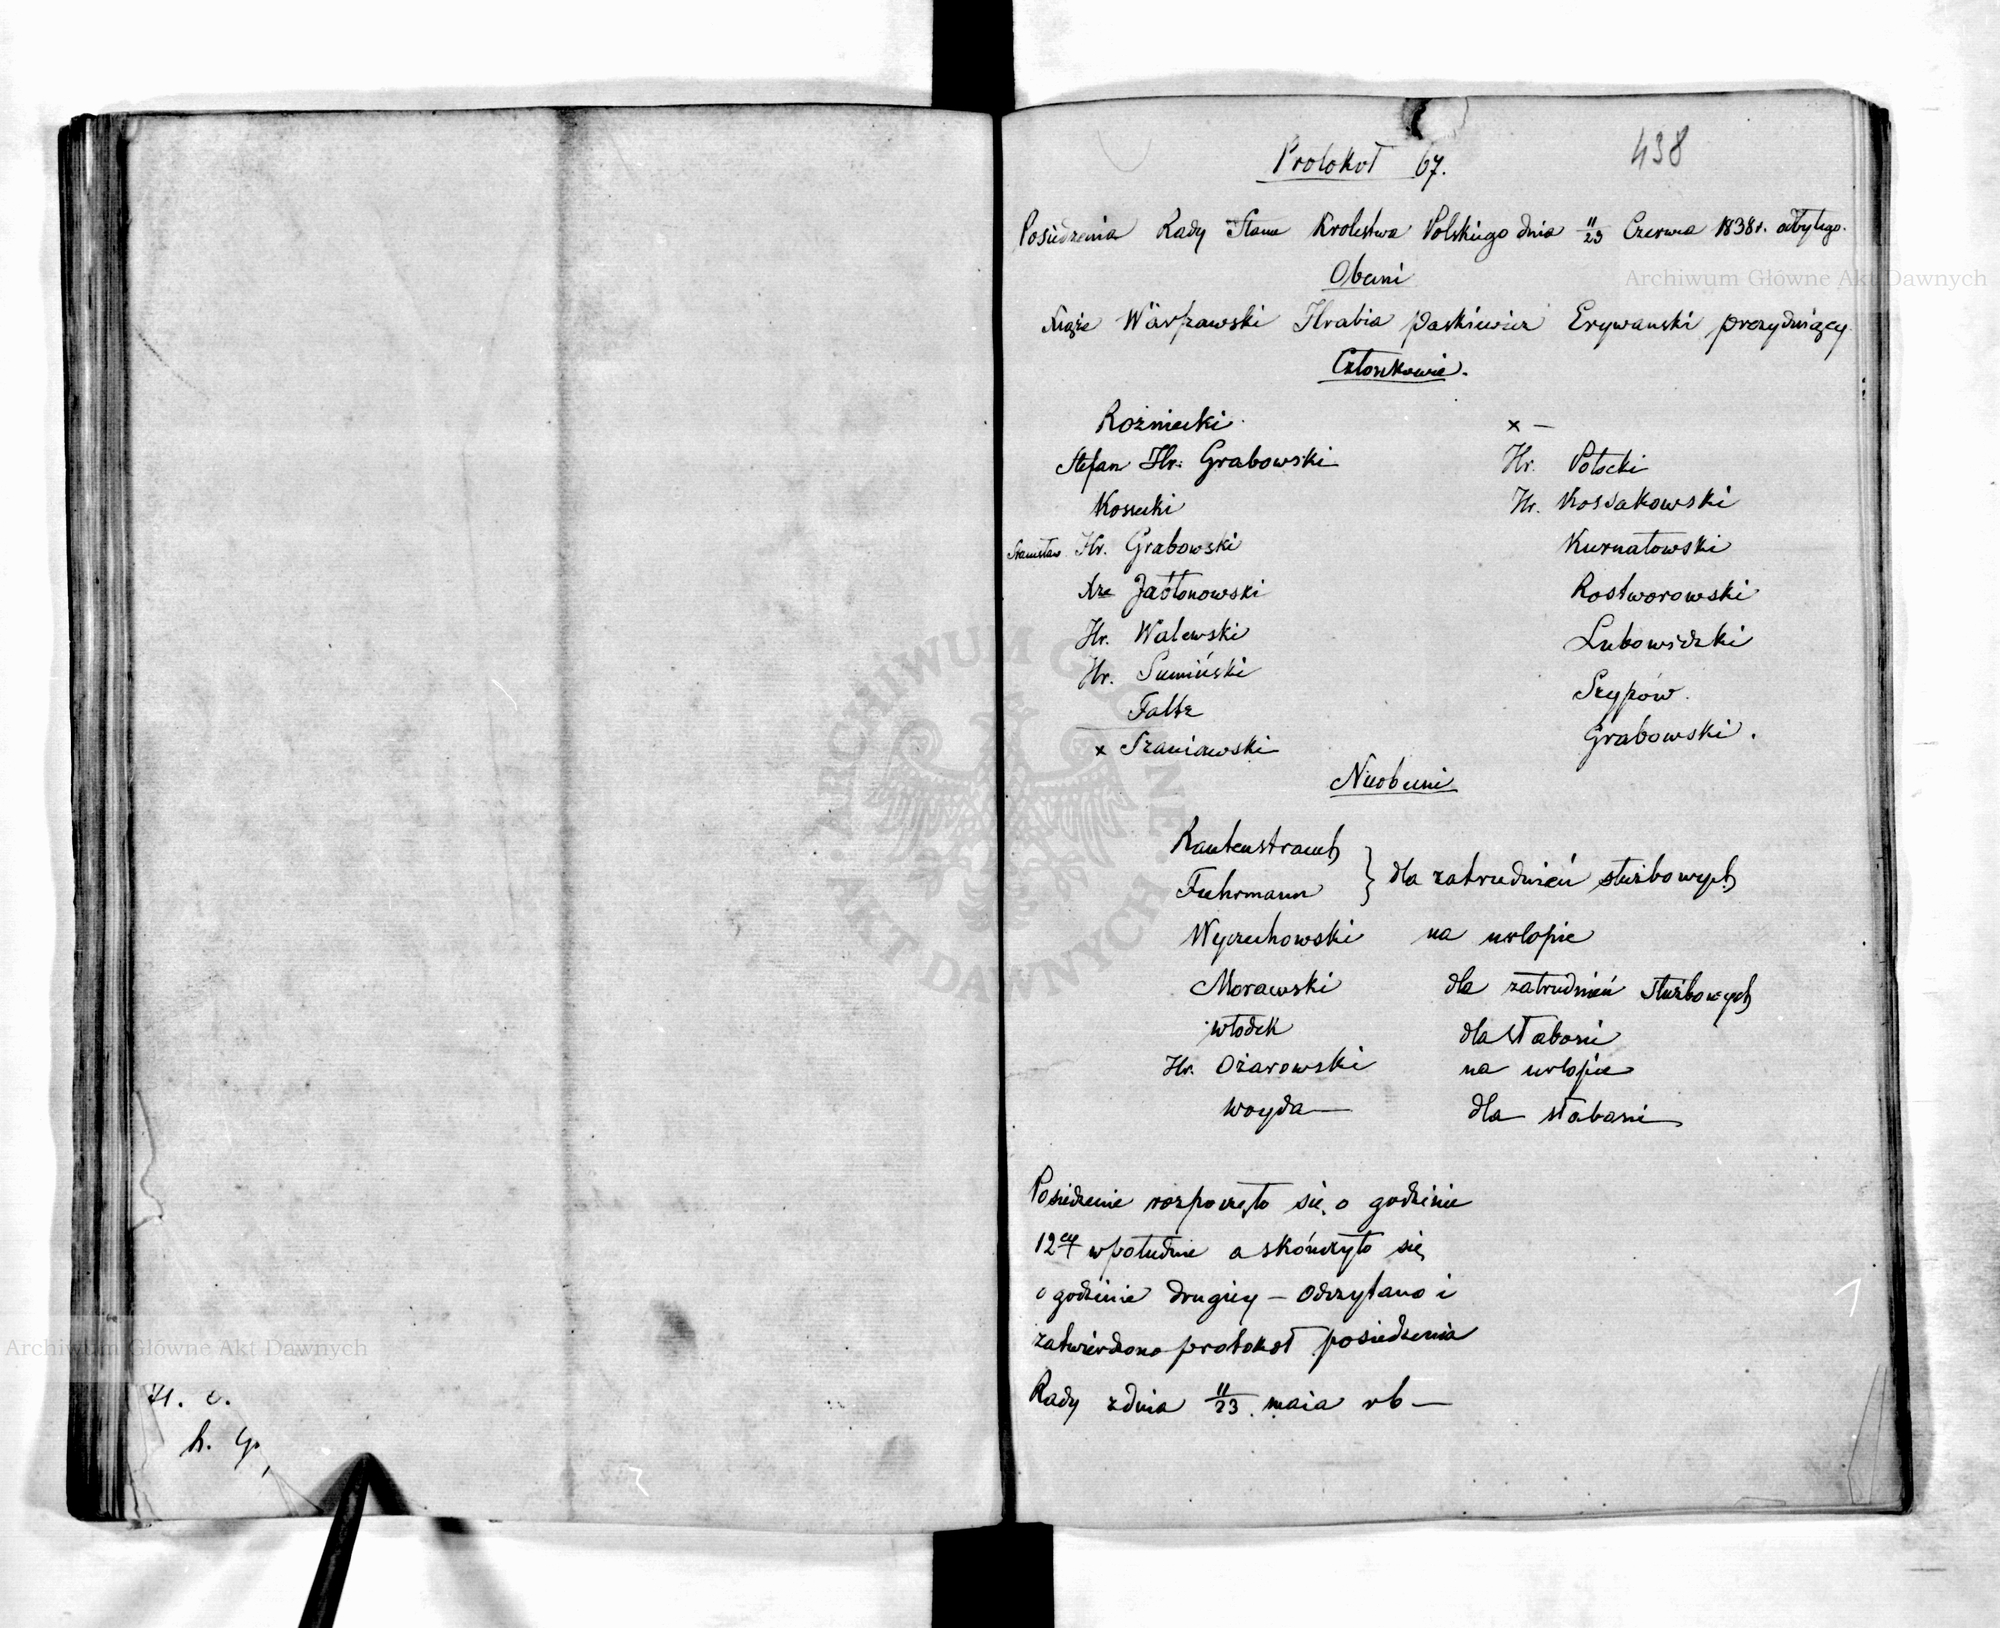 438
Protokoł 67.
Posiedzenia Rady Stanu Krolestwa Polskiego dnia 11/23 Czerwca 1838 r. odbytego.
Obecni
Xiąże Warszawski Hrabia Paskiewicz Erywanski prezyduiący
Członkowie.
Rożniecki. x —
Stefan Hr. Grabowski Hr. Potocki
Kossecki Hr. Kossakowski
Stanisław Hr. Grabowski Kurnatowski
Xże Jabłonowski Rostworowski
Hr. Walewski Lubowidzki
Hr. Sumiński Szypów.
Faltz Grabowski.
x Szaniawski
Nieobecni
Rautenstrauch
Fuhrmann } dla zatrudnień służbowych
Wyczechowski na urlopie
Morawski dla zatrudnień służbowych
Włodek dla słabosci
Hr. Ożarowski na urlopie
Woyda — dla słabosci
Posiedzenie rozpoczęło się o godzinie
12ey w południe a skończyło się
o godzinie drugiey — Odczytano i
zatwierdzono protokoł posiedzenia
Rady z dnia 11/23 maia rb —
Archiwum Główne Akt Dawnych
Archiwum Główne Akt Dawnych
ARCHIWUM GŁÓWNE AKT DAWNYCH